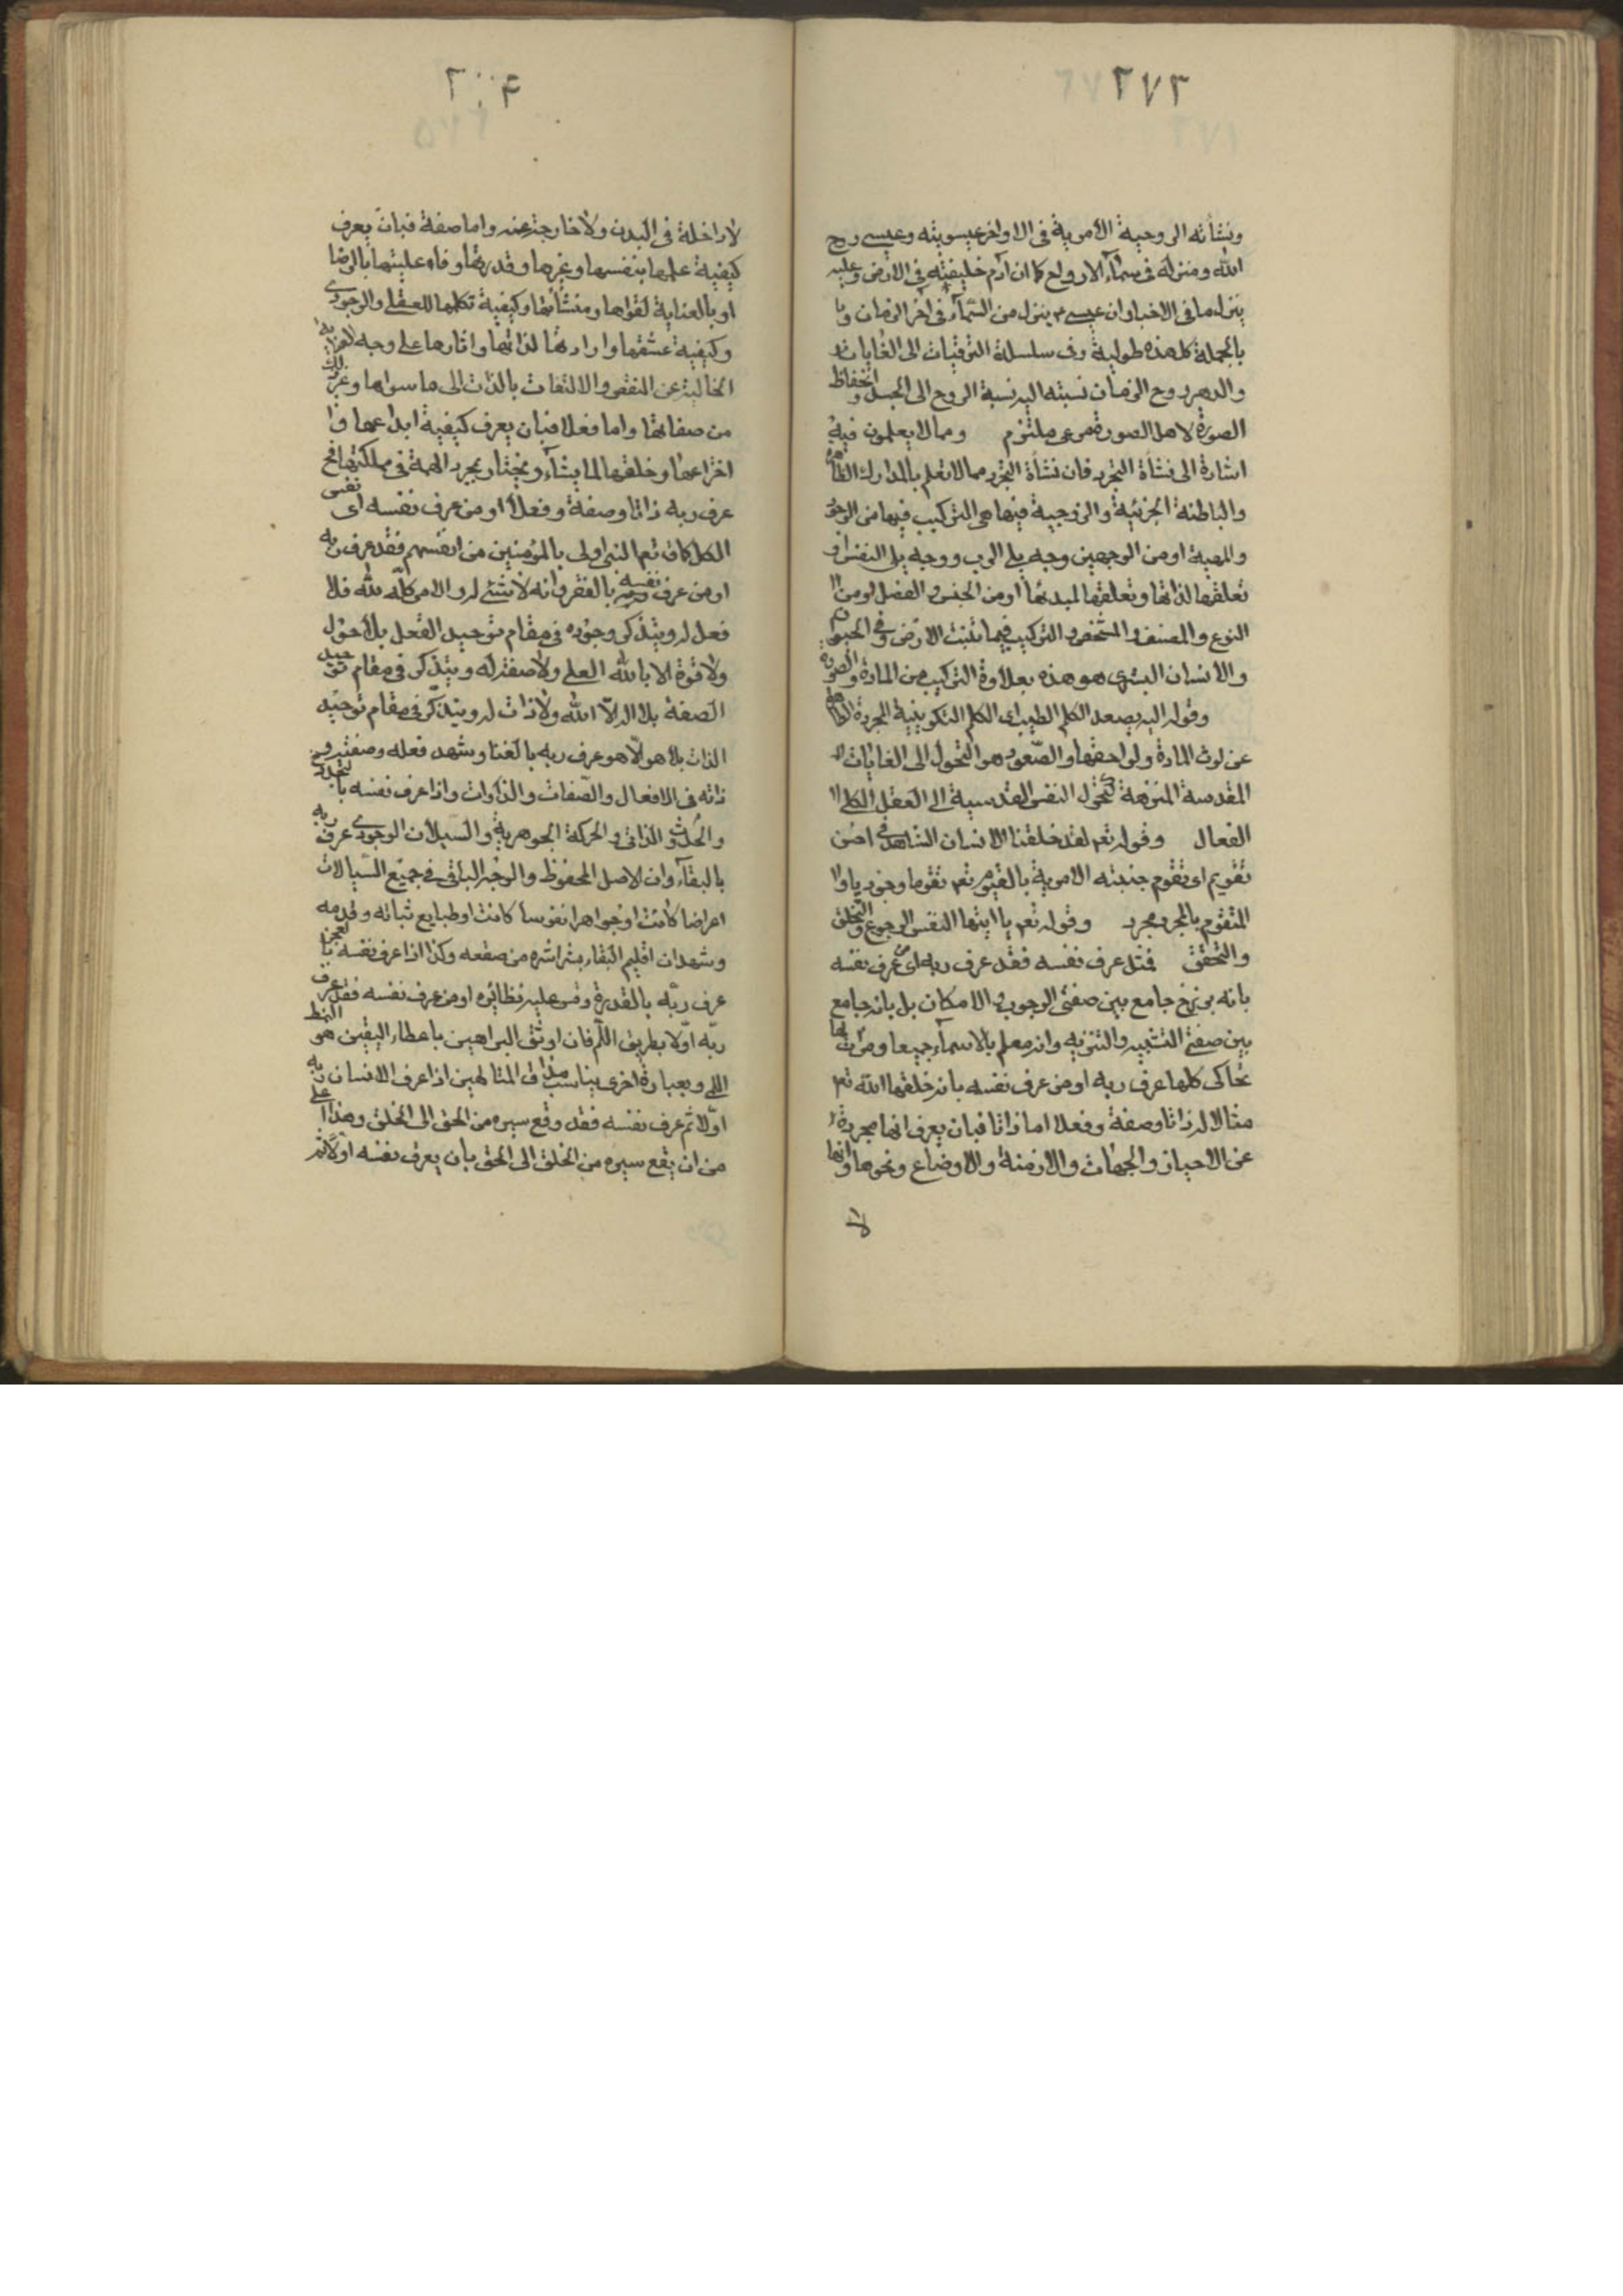 ٢٧٣
ونشأته الروحية الأمرية فى الاواخر عيسويته وعيسى روح
الله ومنزله فى سماء الارواح كما ان آدم خليفته فى الارض وعليه
ينزل ما فى الاخبار ان عيسى ع ينزل من السّمآء فى آخر الزمان و
بالجملة كل هذه طولية وفى سلسلة الترقيات الى الغايات
والدهر روح الزمان نسبته اليه نسبة الروح الى الجسد وانحفاظ
الصورة لاهل الصورة مرعى ملتزم ومما لا يعلمون فيه
اشارة الى نشأة التجرد فان نشأة التجرد مما لا تعلم بالمدارك الظاهرة
والباطنة الجزئية والزوجية فيها هى التركيب فيها من الوجود
والمهية او من الوجهين وجه يلى الرب ووجه يلى النفس او
تعلقها لذاتها وتعلقها لمبدئها او من الجنس والفصل او من
النوع والمصنف والمشخص والتركيب فيما تنبت الارض وفى الحيوان
والانسان البشرى هو هذه بعلاوة التركيب من المادة والصورة
وقوله اليه يصعد الكلم الطيب اى الكلم التكوينية المجردة الطاهرة
عن لوث المادة ولواحقها والصّعود هو التحول الى الغايات
المقدسة المنزهة كتحول النفس القدسية الى العقل الكلى
الفعال وقوله تعم لقد خلقنا الانسان الشاهد فى احسن
تقويم اى تقوم جنبته الامرية بالقيوم تعم تقوما وجوديا و
المتقوم بالمجرد مجرد وقوله تعم يا ايتها النفس الرجوع والتخلق
والتحقق فمثل عرف نفسه فقد عرف ربه اى من عرف نفسه
بانه برزخ جامع بين صفتى الوجوب والامكان بل بانه جامع
بين صفتى التشبيه والتنزيه وانه معلم بالاسمآء جميعا ومرآت لها
تحاكى كلها عرف ربه او من عرف نفسه بانه خلقها الله تعم
مثالا له ذاتا وصفة وفعلا اما ذاتا فبان يعرف انها مجردة
عن الاحياز والجهات والازمنة والاوضاع ونحوها وانها
لا
لا داخلة فى البدن ولا خارجة عنه واما صفة فبان يعرف
كيفية علمها بنفسها وغيرها وقدرتها وفاعليتها بالرضا
او بالعناية لقواها ومنشآتها وكيفية تكلمها العقلى والوجودى
وكيفية عشقها وارادتها لذاتها واثارها على وجه
الخالية عن النقص والالتفات بالذات الى ما سواها وغير ذلك
من صفاتها واما فعلا فبان يعرف كيفية ابداعها و
اختراعها وخلقها لما يشآء ويختار بمجرد الهمة فى مملكتها فح
عرف ربه ذاتا وصفة وفعلا او من عرف نفسه اى نفس
الكل كما قال تعم النبى اولى بالمؤمنين من انفسهم فقد عرف ربه
او من عرف نفسه بالفقر وانه لا شئ له والامر كلّه لله فلا
فعل له ويتذكر وجوده فى مقام توحيد الفعل بلا حول
ولا قوة الا بالله العلى ولا صفة له ويتذكر فى مقام توحيد
الصفة بلا اله الّا الله ولا ذات له ويتذكر فى مقام توحيد
الذات بلا هو الّا هو عرف ربه بالغنا وشهد فعله وصفته و
ذاته فى الافعال والصّفات والذّوات واذا عرف نفسه بالتجدد
والحدوث الذاتى والحركة الجوهرية والسّيلان الوجودى عرف ربه
بالبقآء وان الاصل المحفوظ والوجه الباقى فى جميع السّيالات
اعراضا كانت او جواهر نفوسا كانت او طبايع ثباته وقدمه
وشهد ان اقليم البقاء بشراشره من صقعه وكذا اذا عرف نفسه بالعجز
عرف ربّه بالقدرة وقس عليه نظائره او من عرف نفسه فقد عرف
ربّه اوّلا بطريق اللّم فان اوثق البراهين باعطاء اليقين هو النمط
اللمى وبعبارة اخرى يناسب مذاق المتالهين اذا عرف الانسان ربه
اوّلا ثم عرف نفسه فقد وقع سيره من الحق الى الخلق وهذا اعلى
من ان يقع سيره من الخلق الى الحق بان يعرف نفسه اوّلا ثم